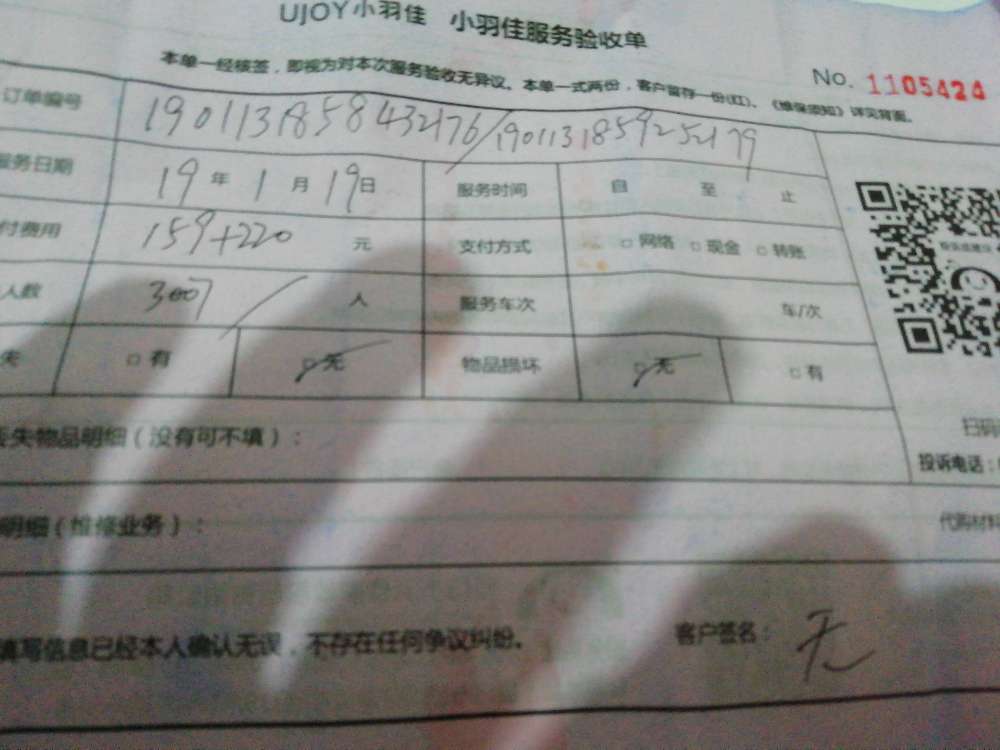 UJOY小羽佳 小羽佳服务验收单
本单一经核签，即视为对本次服务验收无异议。本单一式两份，客户留存一份(红)。《维保须知》详见背面。
No. 1105424
订单编号 1901131858432176/1901131859252179
服务日期 19年1月19日 服务时间 自 至 止
付费用 159+220 元 支付方式 □网络 □现金 □转账
人数 人 服务车次 车/次
失 □有 □无 物品损坏 □无 □有
丢失物品明细（没有可不填）：
扫码
投诉电话：
明细（维修业务）：
代购材料
填写信息已经本人确认无误，不存在任何争议纠纷。 客户签名： 无